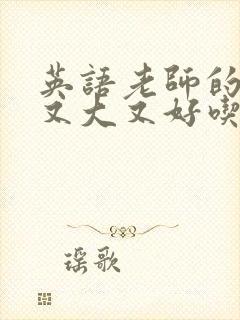 英語老師的
又大又好喫
瑶歌